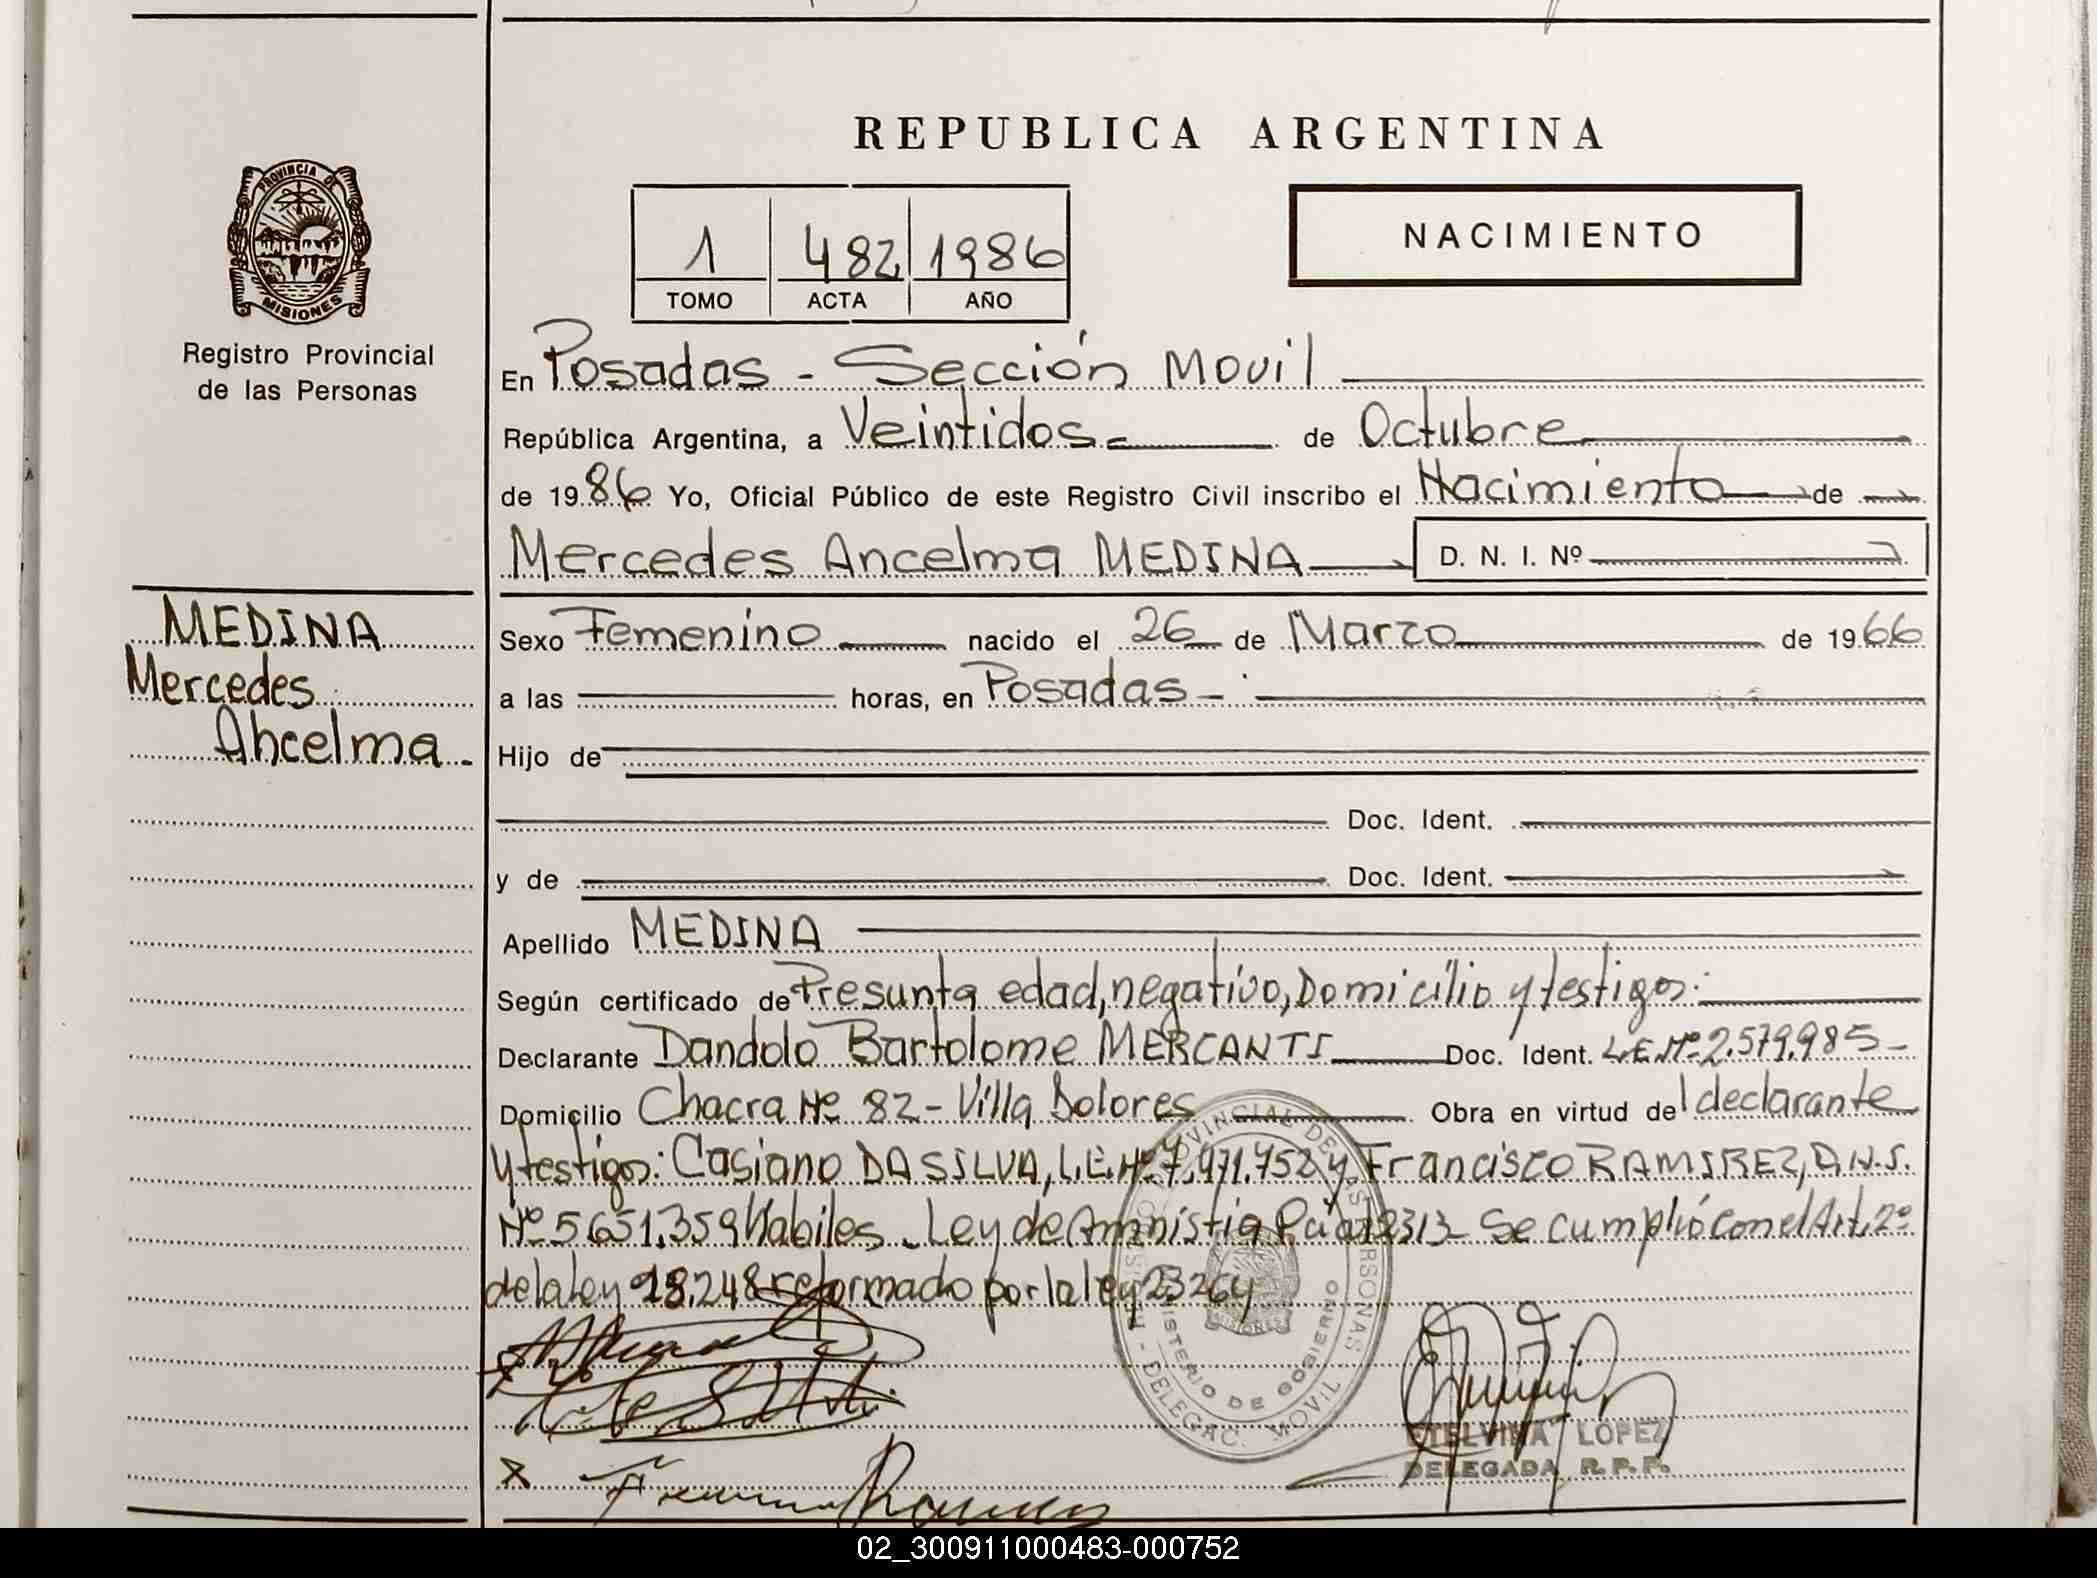 REPUBLICA ARGENTINA
PROVINCIA DE
MISIONES
Registro Provincial
de las Personas
1 482 1986
TOMO ACTA AÑO
NACIMIENTO
En Posadas - Sección Movil
República Argentina, a Veintidos de Octubre
de 1986 Yo, Oficial Público de este Registro Civil inscribo el Nacimiento de
Mercedes Ancelma MEDINA D. N. I. Nº
MEDINA
Mercedes
Ancelma.
Sexo Femenino nacido el 26 de Marzo de 1966
a las horas, en Posadas -
Hijo de
Doc. Ident.
y de Doc. Ident.
Apellido MEDINA
Según certificado de Presunta edad, negativo, Domicilio y testigos:
Declarante Dandolo Bartolome MERCANTI Doc. Ident. L.E.Nº 2.579.985-
Domicilio Chacra Nº 82 - Villa Dolores Obra en virtud del declarante
y testigos: Casiano DA SILVA, L.E. Nº 7.471.752 y Francisco RAMIREZ, D.N.I.
Nº 5.651.359 Habiles - Ley de Amnistia 2313 Se cumplió con el Art. 2º
de la Ley 18.248 reformado por la ley 23264
PROVINCIAL DE LAS PERSONAS
MINISTERIO DE GOBIERNO
MISIONES
DELEGAC. MOVIL
ETELVINA LOPEZ
DELEGADA R.P.P.
X
02_300911000483-000752